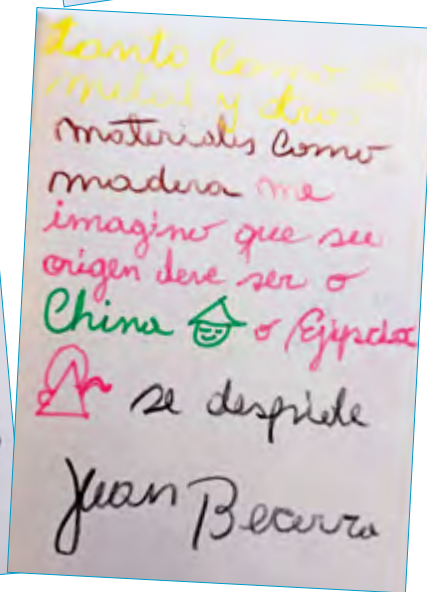 tanto como
metal y otros
materiales como
madera me
imagino que su
origen deve ser o
China o Ejipcia
se despide
Juan Becerra